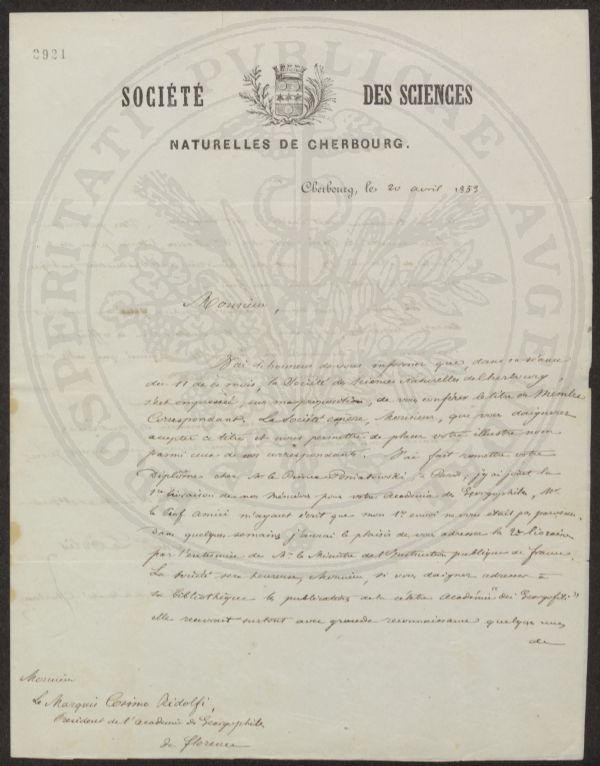 2921
SOCIÉTÉ DES SCIENCES
NATURELLES DE CHERBOURG.
Cherbourg, le 20 avril 1853
Monsieur,
J'ai l'honneur de vous informer que, dans sa séance
du 11 de ce mois, la Société des Sciences Naturelles de Cherbourg,
s'est empressée, sur ma proposition, de vous conférer le titre de Membre
Correspondant. La Société espère, Monsieur, que vous daignerez
accepter ce titre et nous permettre de placer votre illustre nom
parmi ceux de nos correspondants. J'ai fait remettre votre
Diplôme chez Mr le Prince Poniatowski à Paris, j'y ai joint la
1re livraison de nos Mémoires pour votre Académie des Georgophiles, Mr
le Prof Amici m'ayant écrit que mon 1er envoi ne vous était pas parvenu.
Dans quelques semaines j'aurai le plaisir de vous adresser la 2e livraison
par l'entremise de Mr le Ministre de l'Instruction publique de France.
La Société sera heureuse, Monsieur, si vous daignez adresser à
sa bibliothèque les publications de la célèbre Académie "dei Georgofili"
elle recevrait surtout avec grande reconnaissance quelques unes
de
Monsieur
Le Marquis Cosimo Ridolfi,
Président de l'Académie des Georgophiles
de Florence
PROSPERITATI PUBLICAE AUGE